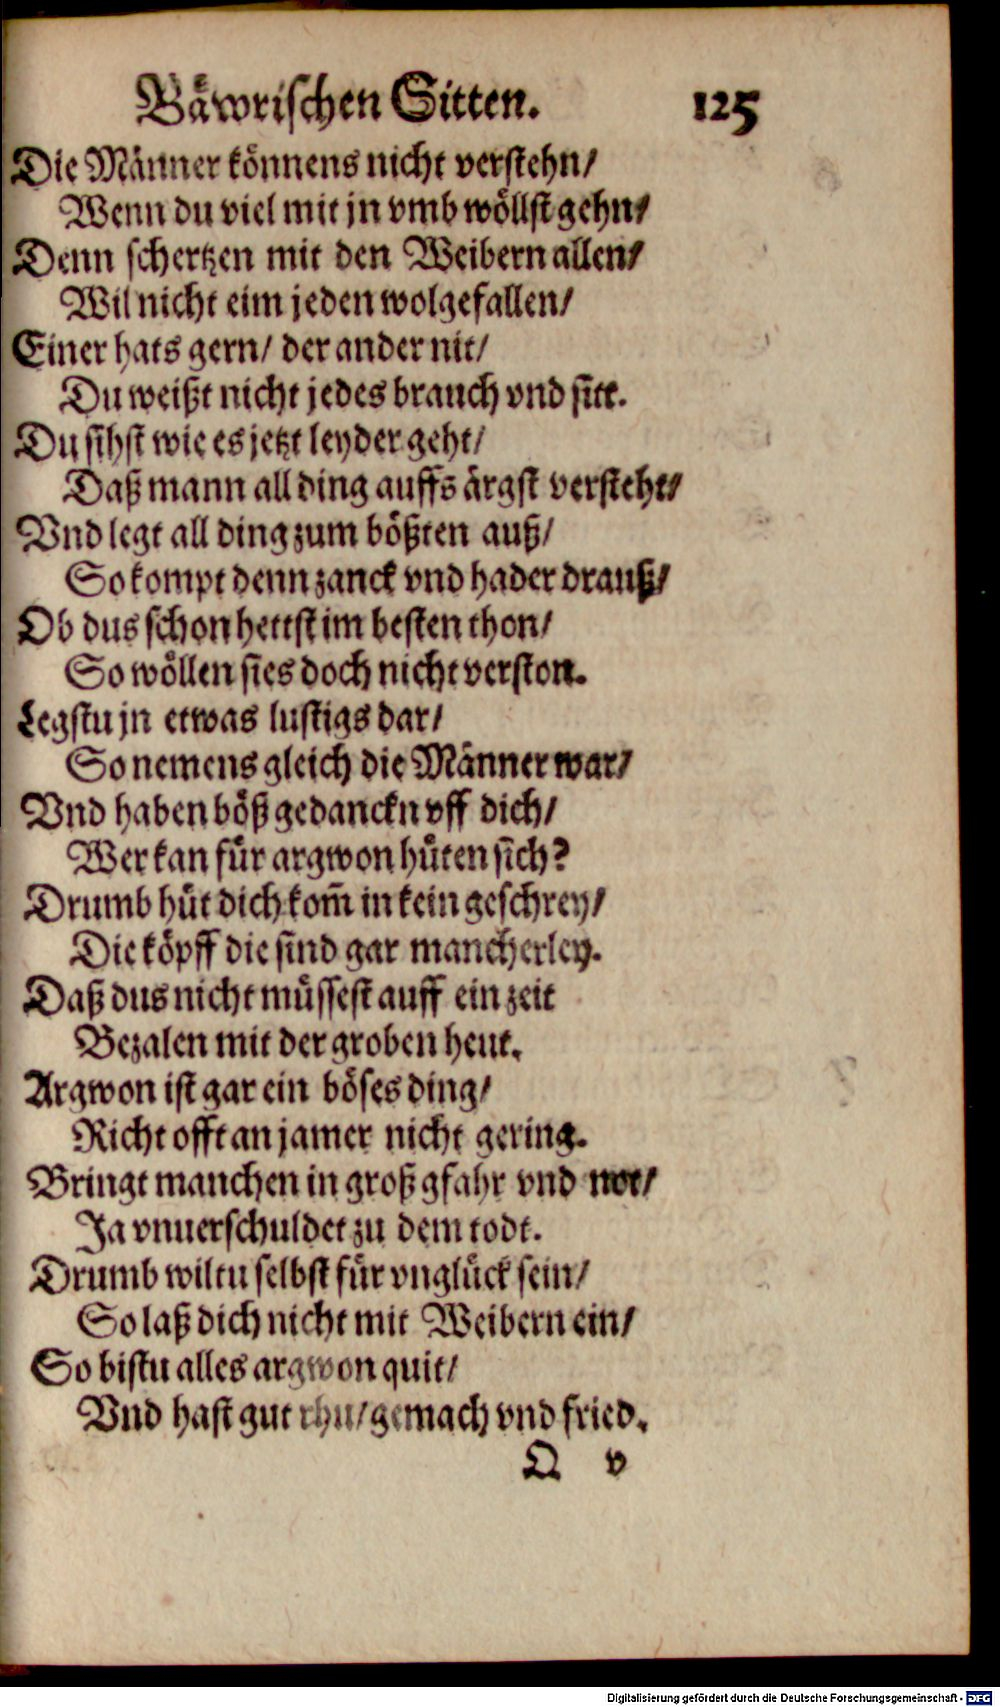 Bäwrischen Sitten. 125
Die Männer können's nicht verstehn/
Wenn du viel mit jn vmb wöllst gehn/
Denn schertzen mit den Weibern allen/
Wil nicht eim jeden wolgefallen/
Einer hats gern/ der ander nit/
Du weißt nicht jedes brauch vnd sitt.
Du sihst wie es jetzt leyder geht/
Daß mann all ding auffs ärgst versteht/
Vnd legt all ding zum bößten auß/
So kompt denn zanck vnd hader drauß/
Ob dus schon hettst im besten thon/
So wöllen sies doch nicht verston.
Legstu jn etwas lustigs dar/
So nemens gleich die Männer war/
Vnd haben böß gedanckn vff dich/
Wer kan für argwon hüten sich?
Drumb hüt dich kom̄ in kein geschrey/
Die köpff die sind gar mancherley.
Daß dus nicht müssest auff ein zeit
Bezalen mit der groben heut.
Argwon ist gar ein böses ding/
Richt offt an jamer nicht gering.
Bringt manchen in groß gfahr vnd not/
Ja vnuerschuldet zu dem todt.
Drumb wiltu selbst für vnglück sein/
So laß dich nicht mit Weibern ein/
So bistu alles argwon quit/
Vnd hast gut rhu/ gemach vnd fried.
Q v
Digitalisierung gefördert durch die Deutsche Forschungsgemeinschaft - DFG